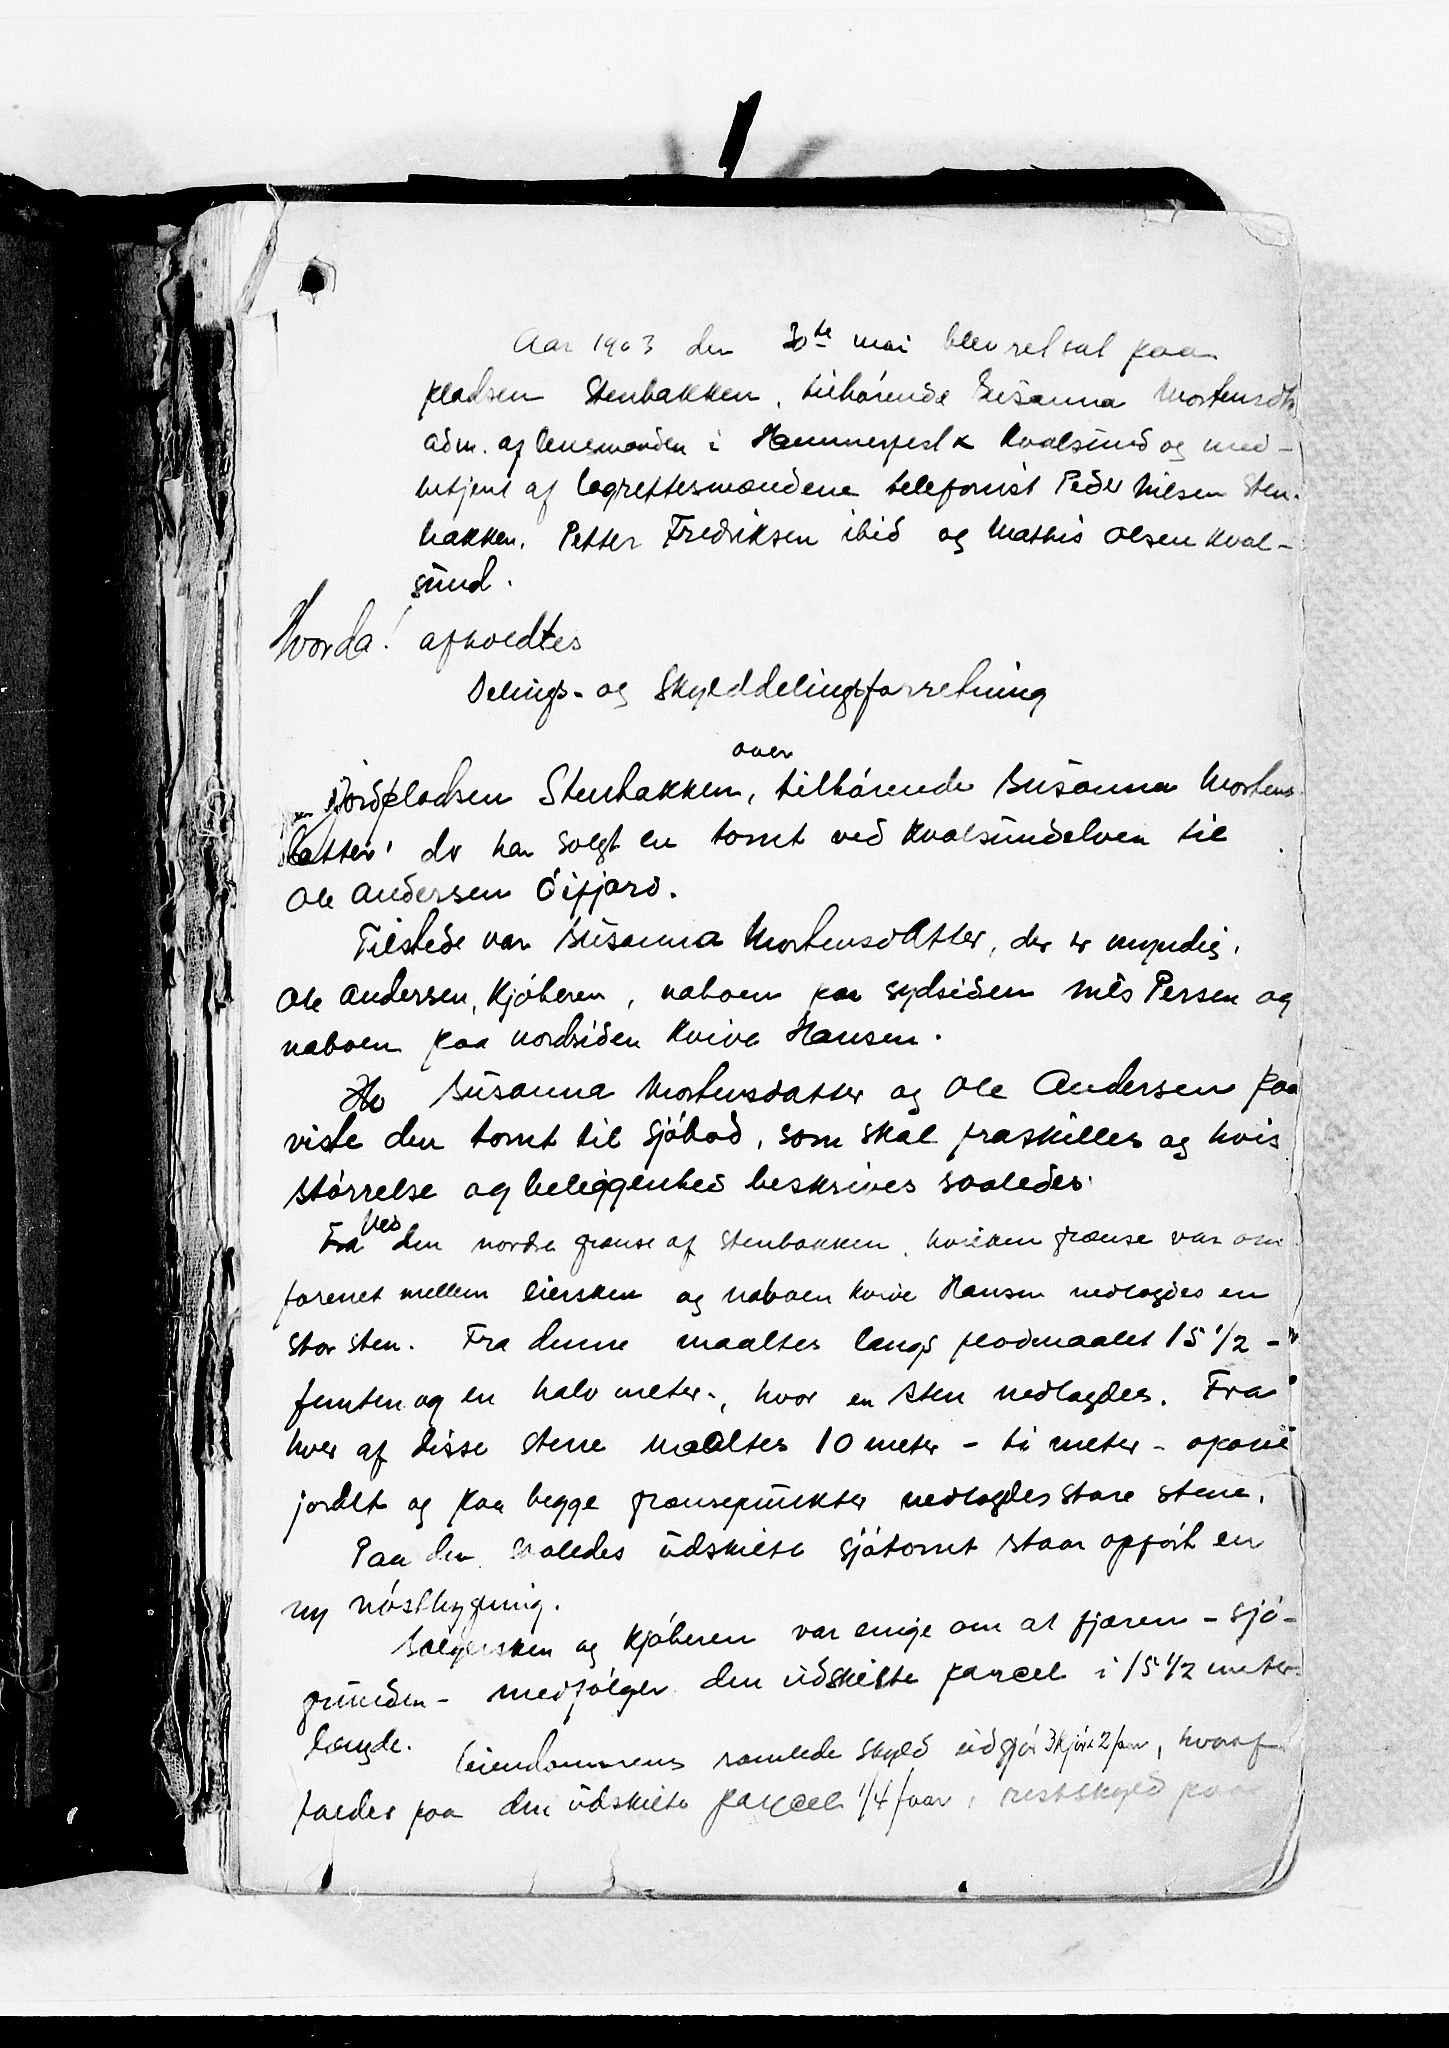 Aar 1903 den 30te mai blev ret sat paa
pladsen Stenbakken, tilhørende Susanna Mortensdtr
adm. af lensmanden i Hammerfest & Kvalsund og med-
betjent af lagrettesmændene telefonist Peder Nilsen Sten-
bakken, Petter Fredriksen ibid og Mathis Olsen Kval-
sund.
Hvorda! afholdtes
Delings- og Skylddelingsforretning
over
Jordpladsen Stenbakken, tilhørende Susanna Mortens
datter, der har solgt en tomt ved Kvalsundelven til
Ole Andersen Øifjord.
Tilstede var Susanna Mortensdatter, der er myndig,
Ole Andersen, Kjøberen, naboen paa sydsiden Nils Persen og
naboen paa nordsiden Kvive Hansen.
Susanna Mortensdatter og Ole Andersen paa
viste den tomt til sjøbod, som skal fraskilles og hvis
størrelse og beliggenhed beskrives saaledes:
Fra ved den nordre grænse af Stenbakken, hvilken grænse var om
forenet mellem eiersken og naboen Kvive Hansen nedlagdes en
stor sten. Fra denne maaltes langs flodmaalet 15 1/2 - "
femten og en halv meter -, hvor en sten nedlagdes. Fra
hver af disse stene maaltes 10 meter - ti meter - opover
jordet og paa begge grænsepunkter nedlagdes store stene.
Paa den saaledes udskilte sjøtomt staar opført en
ny nøstbygning.
Sælgersken og Kjøberen var enige om at fjæren - sjø-
grunden - medfølger den udskilte parcel i 15 1/2 meter
længde.
Eiendommens samlede skyld udgjør 3 kjør 2 faar, hvoraf
falder paa den udskilte parcel 1/4 faar, restskyld paa